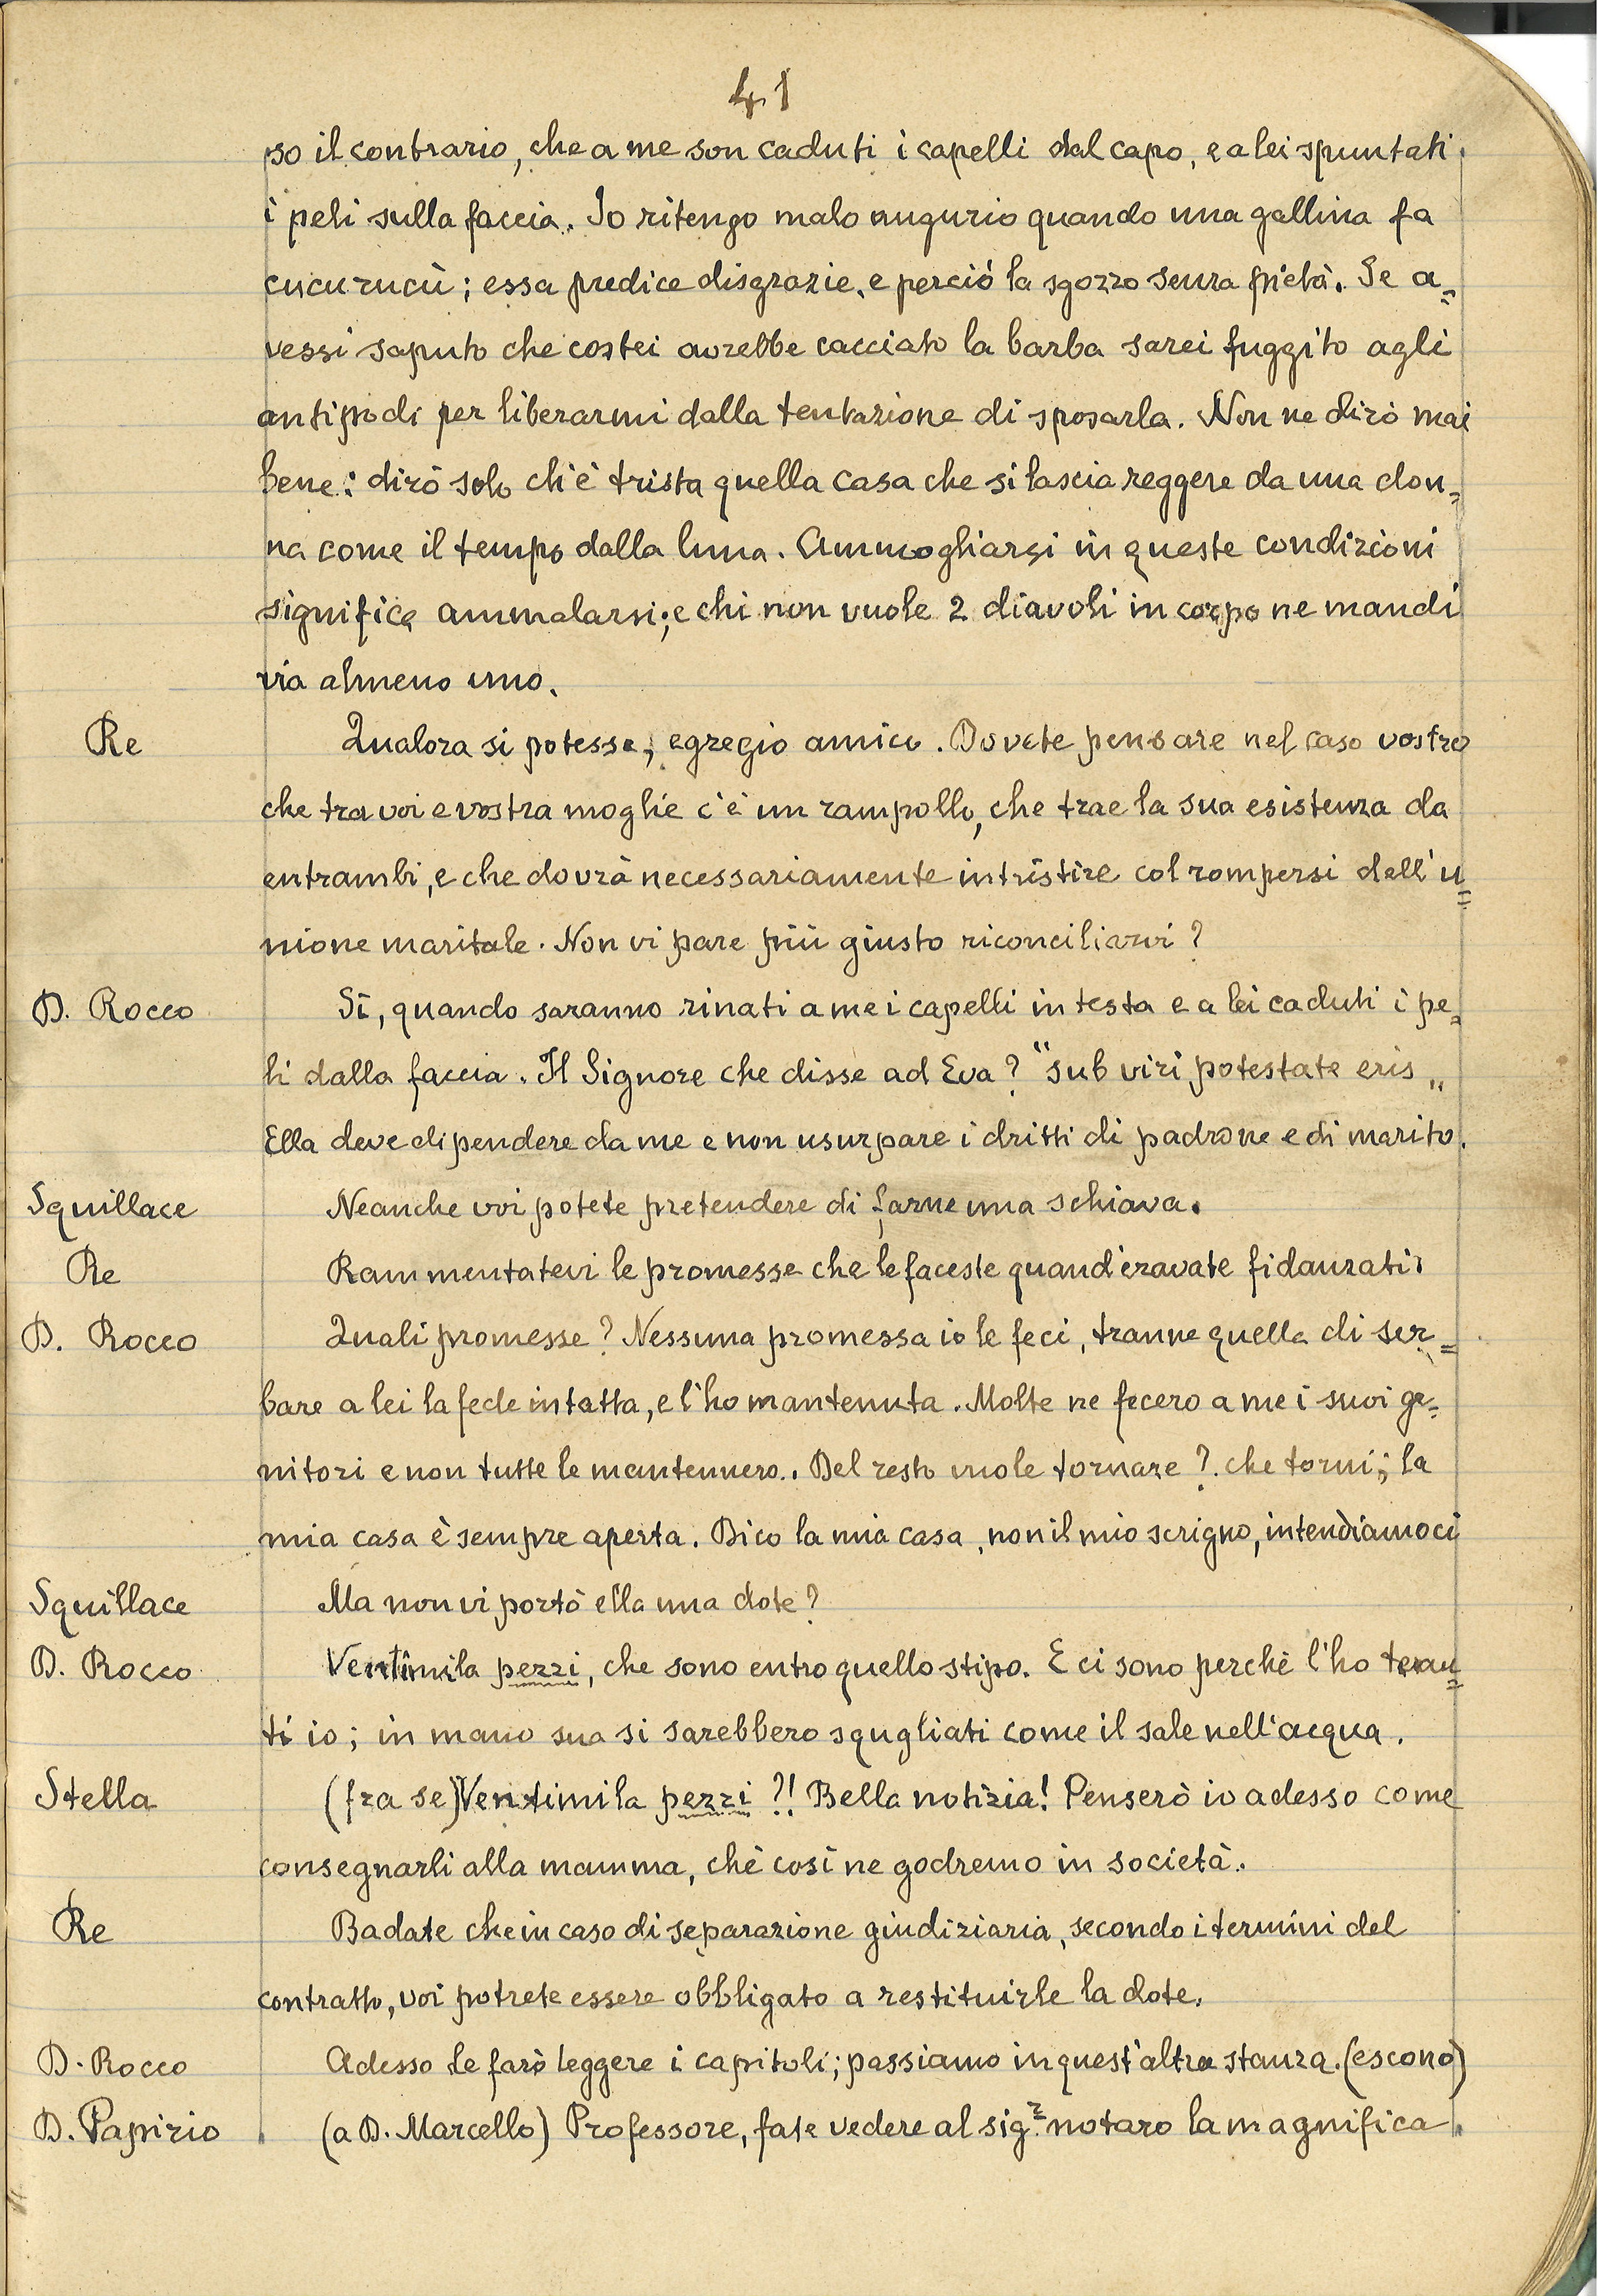 41
so il contrario, che a me son caduti i capelli dal capo, e a lei spuntati
i peli sulla faccia. Io ritengo malo augurio quando una gallina fa
cucurucù; essa predice disgrazie, e perciò la sgozzo senza pietà. Se a=
vessi saputo che costei avrebbe cacciato la barba sarei fuggito agli
antipodi per liberarmi dalla tentazione di sposarla. Non ne dirò mai
bene: dirò solo ch'è trista quella casa che si lascia reggere da una don=
na come il tempo dalla luna. Ammogliarsi in queste condizioni
significa ammalarsi; e chi non vuole 2 diavoli in corpo ne mandi
via almeno uno.
Re Qualora si potesse, egregio amico. Dovete pensare nel caso vostro
che tra voi e vostra moglie c'è un rampollo, che trae la sua esistenza da
entrambi, e che dovrà necessariamente intristire col rompersi dell'u=
nione maritale. Non vi pare più giusto riconciliarvi?
D. Rocco Sì, quando saranno rinati a me i capelli in testa e a lei caduti i pe=
li dalla faccia. Il Signore che disse ad Eva? "sub viri potestate eris„
Ella deve dipendere da me e non usurpare i dritti di padrone e di marito.
Squillace Neanche voi potete pretendere di farne una schiava.
Re Rammentatevi le promesse che le faceste quand'eravate fidanzati.
D. Rocco Quali promesse? Nessuna promessa io le feci, tranne quella di ser=
bare a lei la fede intatta, e l'ho mantenuta. Molte ne fecero a me i suoi ge=
nitori e non tutte le mantennero. Del resto vuole tornare? che torni; la
mia casa è sempre aperta. Dico la mia casa, non il mio scrigno, intendiamoci
Squillace Ma non vi portò ella una dote?
D. Rocco Ventimila pezzi, che sono entro quello stipo. E ci sono perchè l'ho tenu=
ti io; in mano sua si sarebbero squgliati come il sale nell'acqua.
Stella (fra se) Ventimila pezzi?! Bella notizia! Penserò io adesso come
consegnarli alla mamma, chè così ne godremo in società.
Re Badate che in caso di separazione giudiziaria, secondo i termini del
contratto, voi potrete essere obbligato a restituirle la dote.
D. Rocco Adesso le farò leggere i capitoli; passiamo in quest'altra stanza. (escono)
D. Papirio (a D. Marcello) Professore, fate vedere al sig.r notaro la magnifica